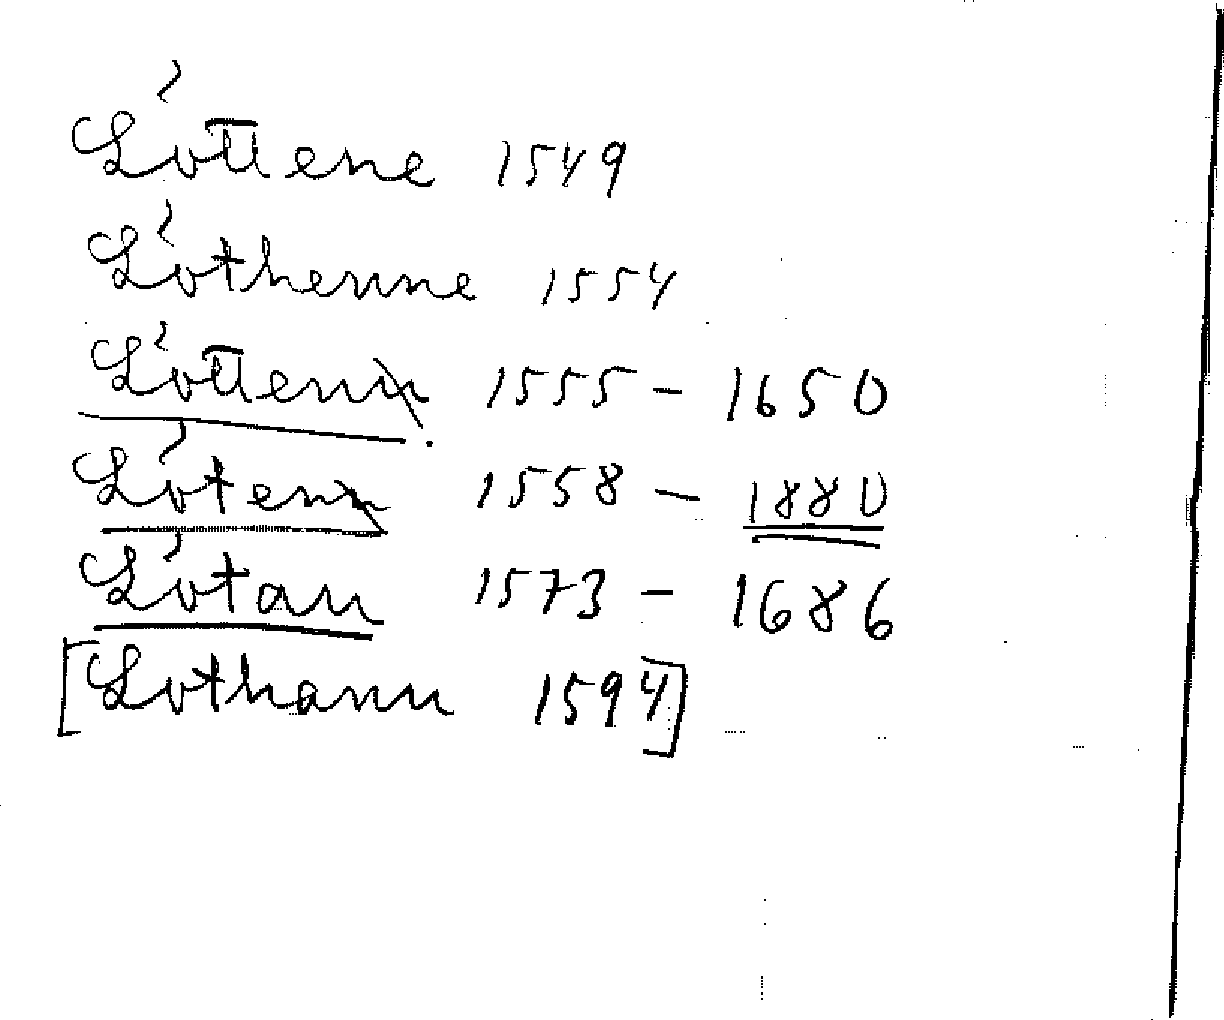 Lóttene 1549
Lóthenne 1554
Lóttenn 1555 - 1650
Lótenn 1558 - 1880
Lótan 1573 - 1686
[Lothann 1594]